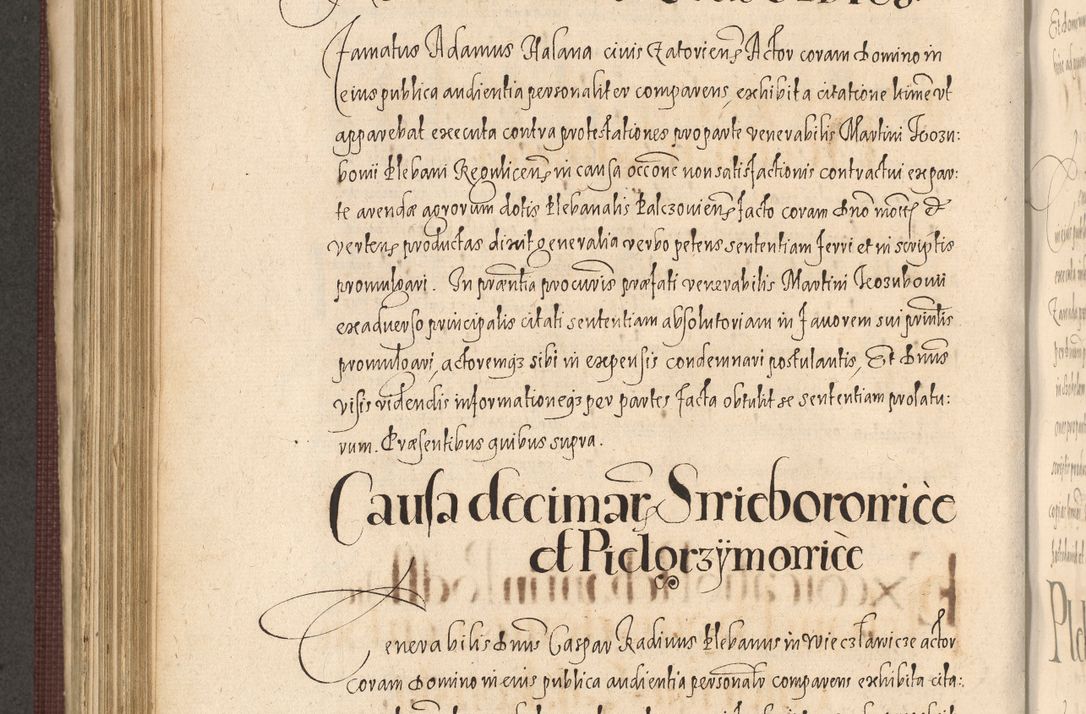 Famatus Adamus Halana civis Zatorien̄ Actor coram Domino in
eius publica audientia personaliter comparens, exhibita citatione huiōe ut
apparebat executa contra protestationes pro parte venerabilis Martini Kozu:
bouii Plebani Regulicen̄, in causa occōne non satisfactionis contractui ex par:
te arendæ agrorum dotis Plebanalis Palczovien̄ facto coram Dno
productas dixit generalia verbo petens sententiam ferri et in scriptis
promulgari. In præn̄tia procuris præfati venerabilis Martini Kozubouii
ex adverso principalis citati sententiam absolutoriam in favorem sui prin̄lis
promulgari, actoremq; sibi in expensis condemnari postulantis, Et Dnus
visis videndis informationeq; per partes facta obtulit se sententiam prolatu:
rum. Præsentibus quibus supra.
Causa decimar̄ Smieborowicè
et Pielgrzÿmowicè
Venerabilis Dnus Caspar Radinus Plebanus in Wieczławicze actor
coram Domino in eius publica audientia personalr comparens exhibita cita: